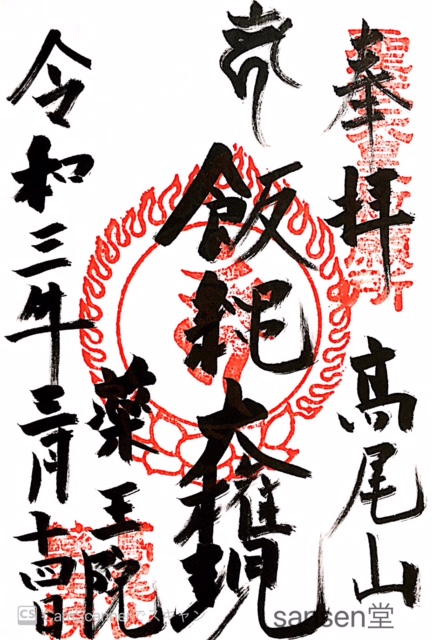 奉拝 高尾山
飯縄大権現
薬王院
令和三年三月十四日
CS
sansen堂